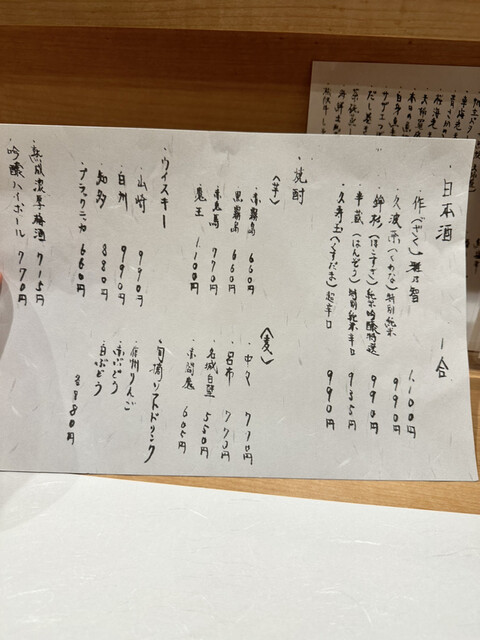 ・日本酒 一合
・作(ざく) 雅乃智 1,100円
・久波奈(くわな) 特別純米 990円
・鉾杉(ほこすぎ) 純米吟醸特送 990円
・半蔵(はんぞう) 特別純米辛口 935円
・久寿玉(くすだま) 超辛口 990円
・焼酎
〈芋〉
・赤霧島 660円
・黒霧島 660円
・赤兎馬 770円
・魔王 1,100円
〈麦〉
・中々 770円
・呂布 770円
・名城白壁 550円
・赤閻魔 605円
・ウイスキー
・山崎 990円
・白州 990円
・知多 880円
・ブラックニッカ 660円
・旬滴ソフトドリンク
・信州りんご
・赤ぶどう
・白ぶどう
各880円
・熟成濃厚梅酒 715円
・吟醸ハイボール 770円